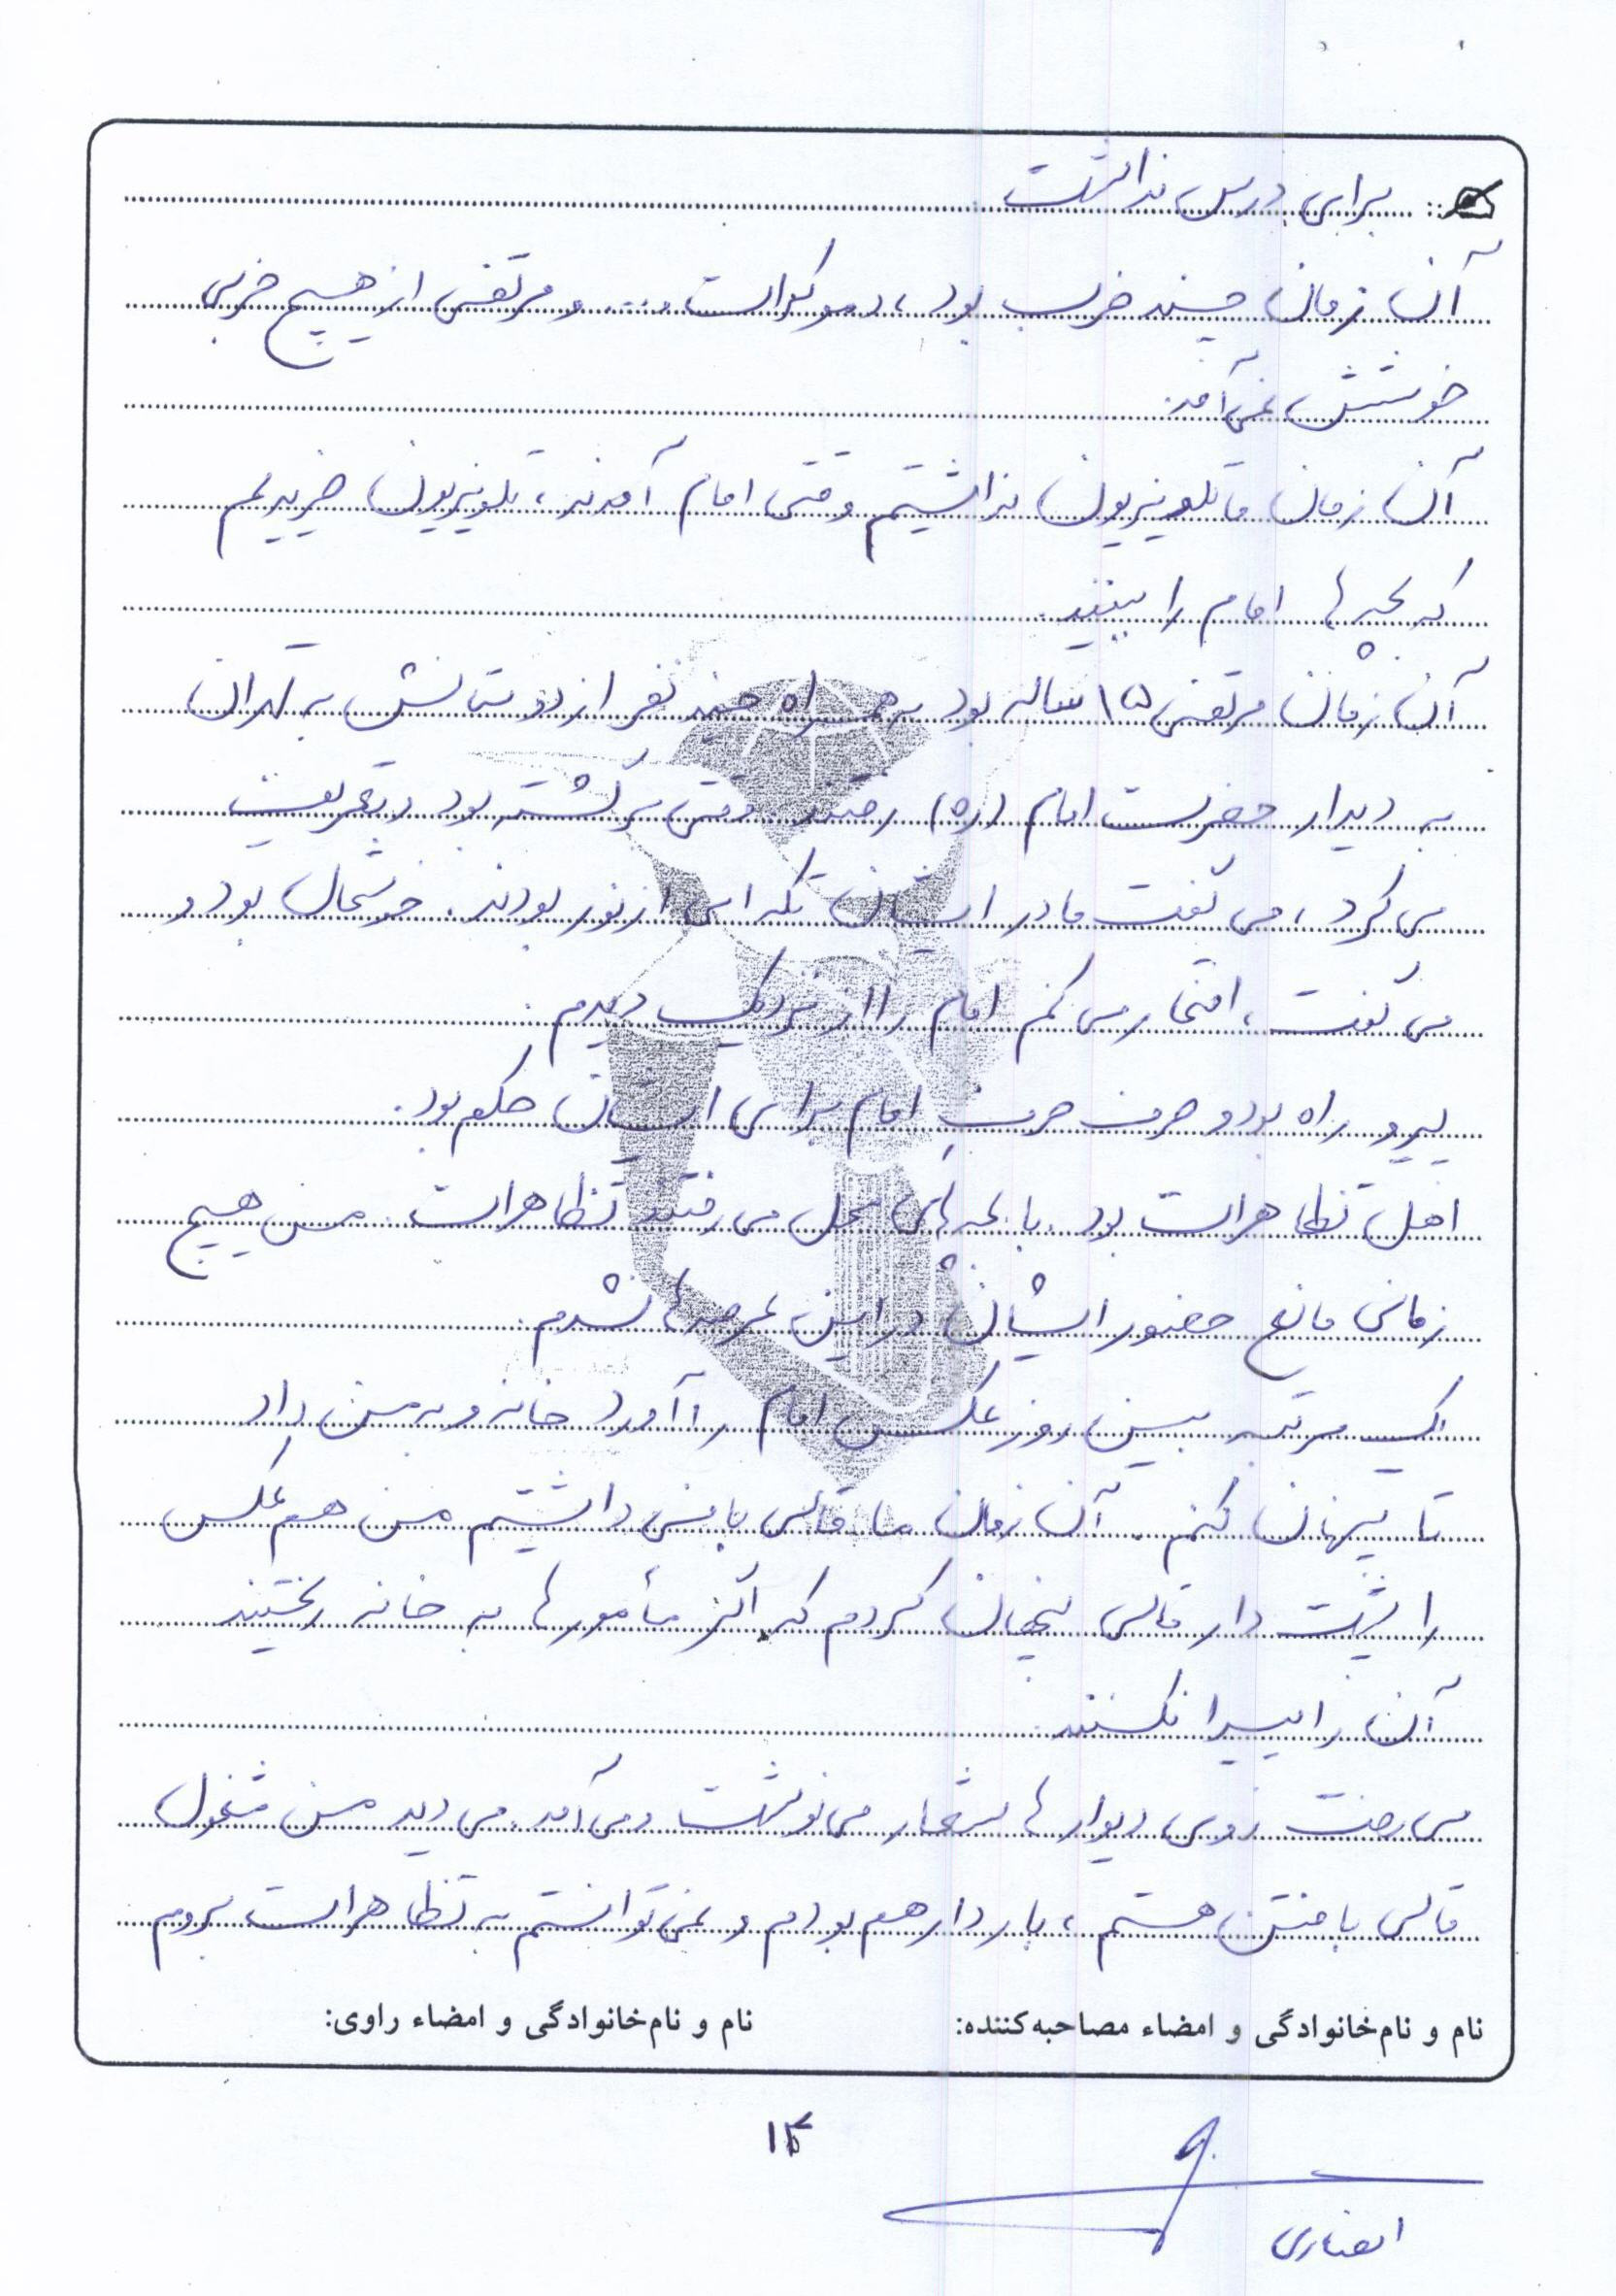 برای درس نداشت
آن زمان چند حزب بود، دموکرات و... و مرتضی از هیچ حزبی
خوشش نمی‌آمد.
آن زمان ما تلویزیون نداشتیم وقتی امام آمدند، تلویزیون خریدیم
که بچه‌ها امام را ببینند.
آن زمان مرتضی ۱۵ ساله بود به همراه چند نفر از دوستانش به تهران
به دیدار حضرت امام (ره) رفتند وقتی برگشته بود و تعریف
می‌کرد، می‌گفت مادر ایشان تکه‌ای از نور بودند. خوشحال بود و
می‌گفت، افتخار می‌کنم امام را از نزدیک دیدم.
پیرو راه بود و حرف حرفِ امام برای ایشان حکم بود.
اهل تظاهرات بود. با بچه‌های محل می‌رفتند تظاهرات. من هیچ
زمانی مانع حضور ایشان در این عرصه‌ها نشدم.
یک مرتبه بین روز عکس امام را آورد خانه و به من داد
تا پنهان کنم. آن زمان ما قالی بافی داشتیم من هم عکس
را پشت دار قالی پنهان کردم که اگر مأمورها به خانه ریختند
آن را پیدا نکنند.
می‌رفت روی دیوارها شعار می‌نوشت و می‌آمد. می‌دید من مشغول
قالی بافتن هستم، باردار هم بودم و نمی‌توانستم به تظاهرات بروم
نام و نام‌خانوادگی و امضاء مصاحبه‌کننده: نام و نام‌خانوادگی و امضاء راوی:
انصاری